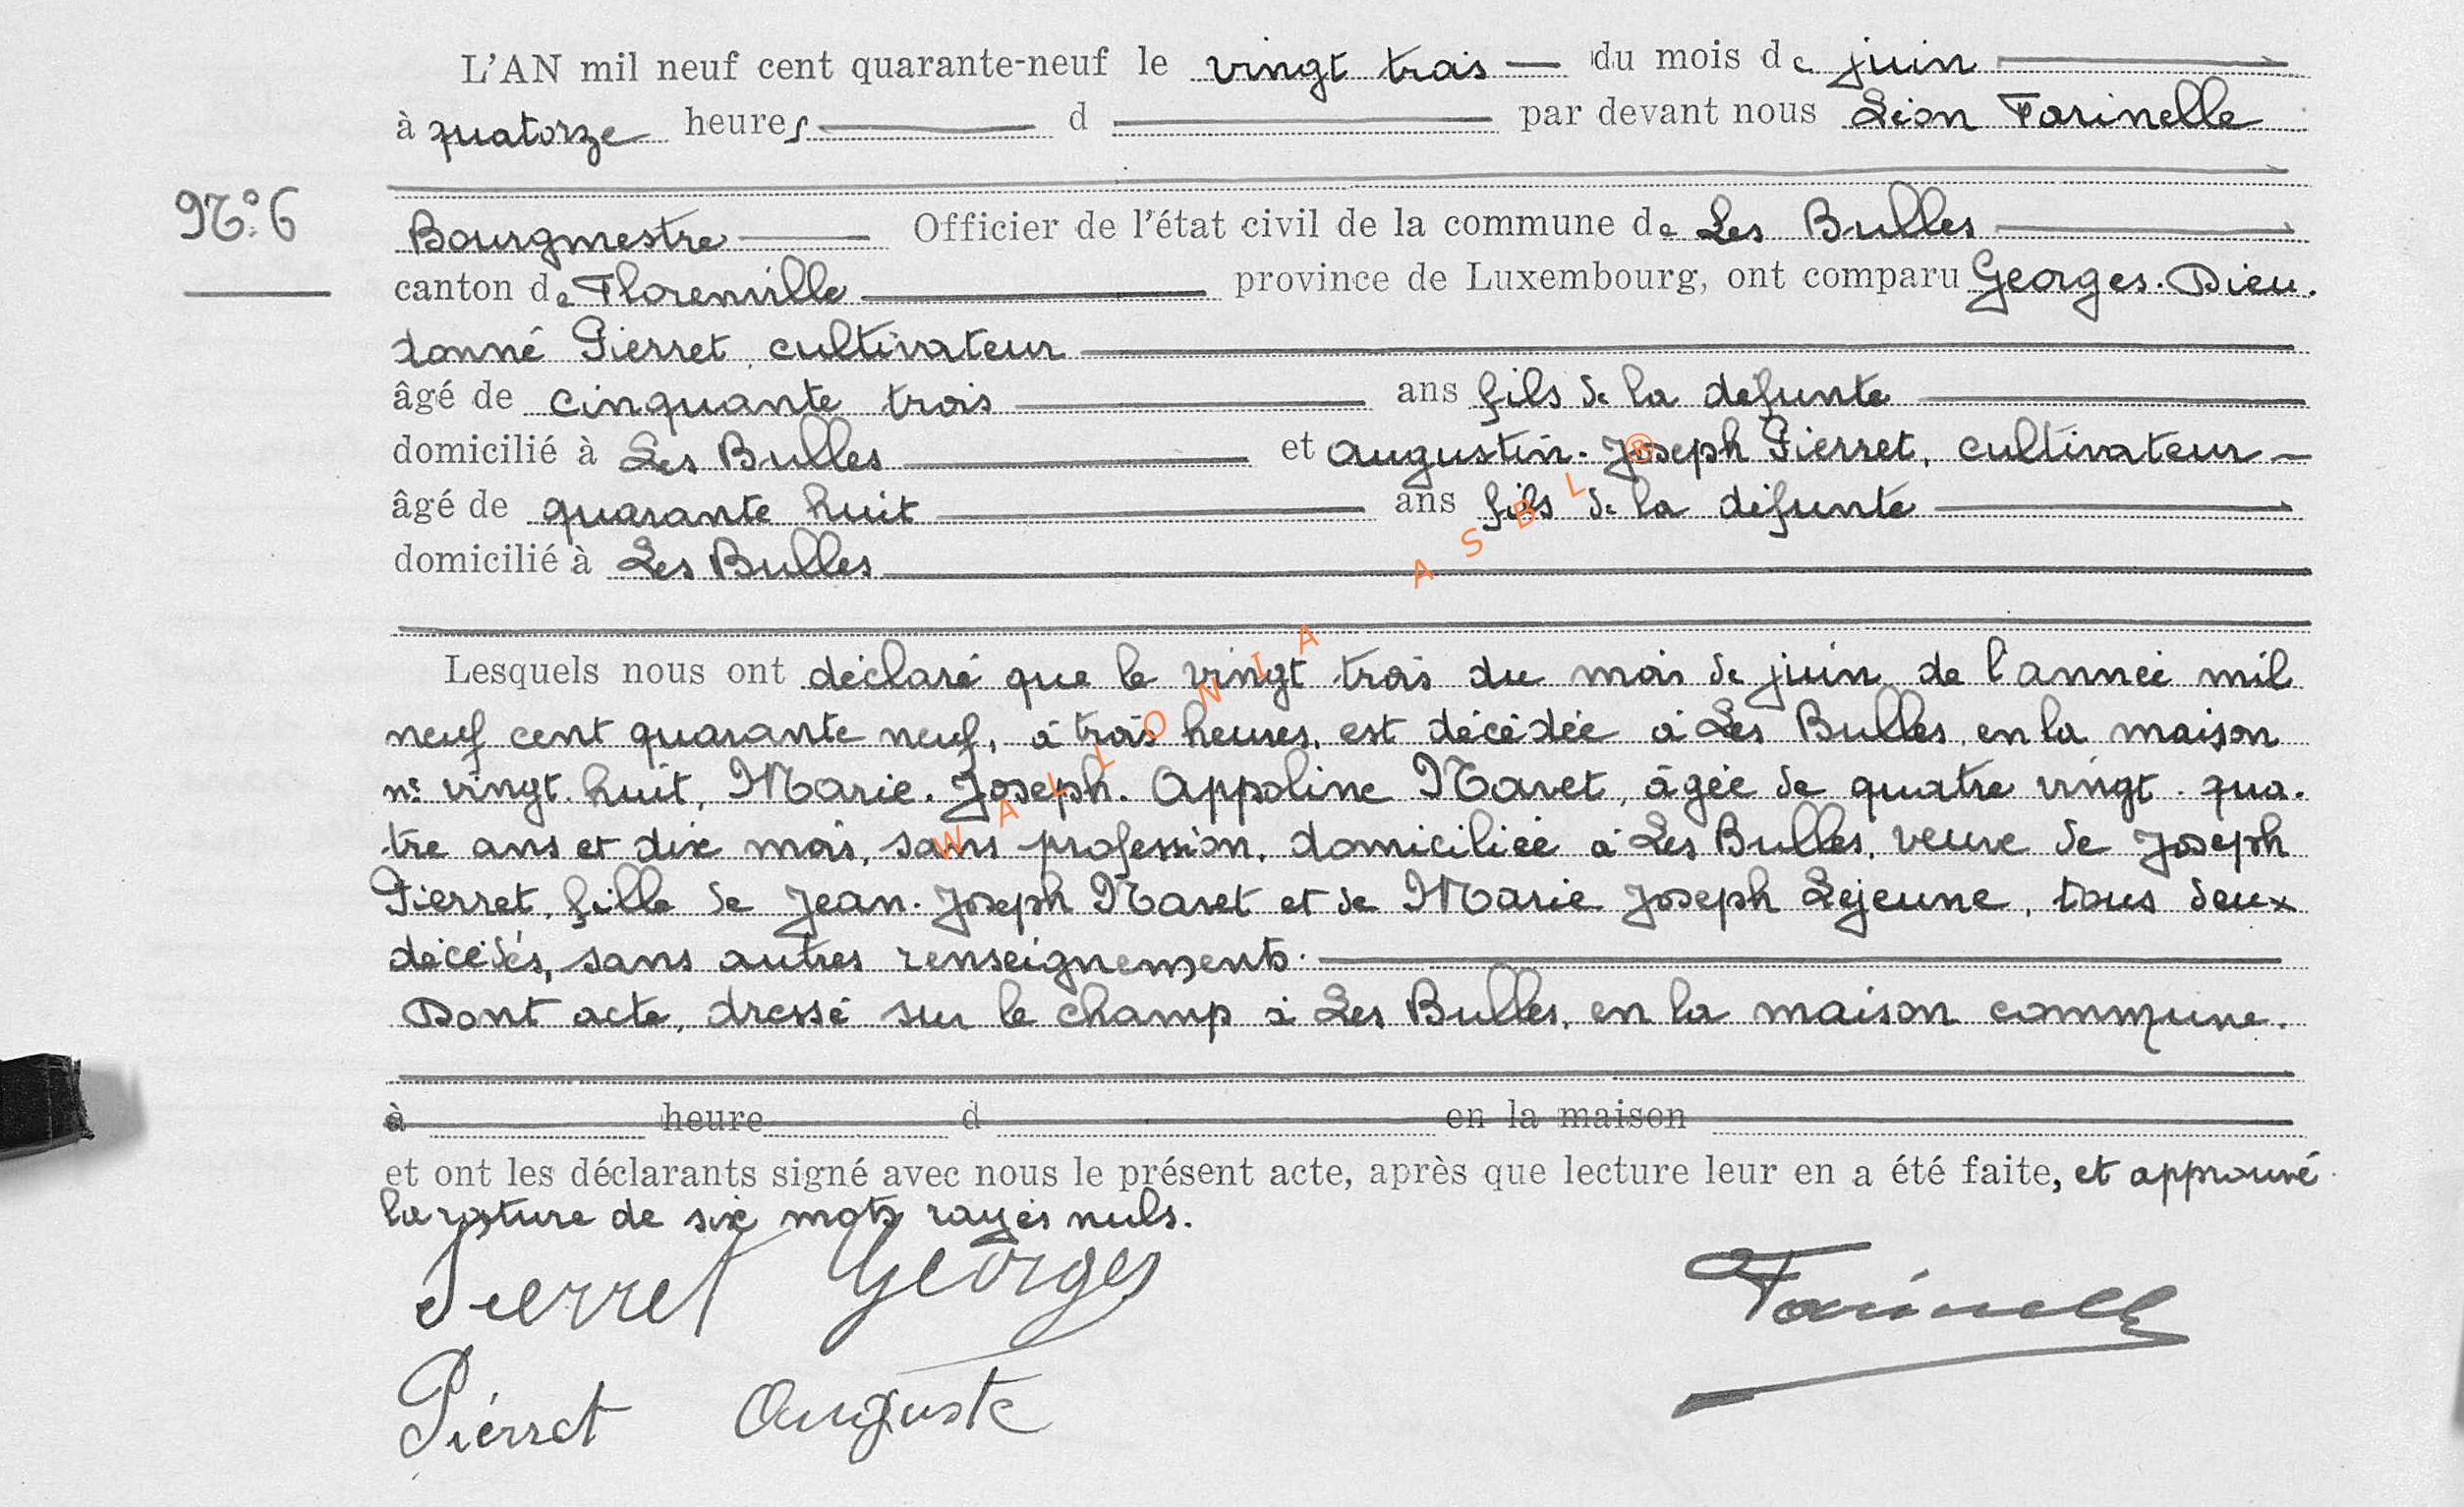 L'AN mil neuf cent quarante-neuf le vingt trois du mois de juin
à quatorze heures d par devant nous Léon Farinelle
N° 6
Bourgmestre Officier de l'état civil de la commune de Les Bulles
canton de Florenville province de Luxembourg, ont comparu Georges-Dieu-
donné Pierret, cultivateur
âgé de cinquante trois ans fils de la défunte
domicilié à Les Bulles et Augustin-Joseph Pierret, cultivateur
âgé de quarante huit ans fils de la défunte
domicilié à Les Bulles
Lesquels nous ont déclaré que le vingt trois du mois de juin de l'année mil
neuf cent quarante neuf, à trois heures, est décédée à Les Bulles, en la maison
n° vingt-huit, Marie-Joseph-Appoline Navet, âgée de quatre vingt-qua-
tre ans et dix mois, sans profession, domiciliée à Les Bulles, veuve de Joseph
Pierret, fille de Jean-Joseph Navet et de Marie Joseph Lejeune, tous deux
décédés, sans autres renseignements.
Dont acte, dressé sur le champ à Les Bulles, en la maison commune.
à heure d en la maison
et ont les déclarants signé avec nous le présent acte, après que lecture leur en a été faite, et approuvé
la rature de six mots rayés nuls.
Pierret Georges
Farinelle
Pierret Auguste
WALLONIA ASBL ®